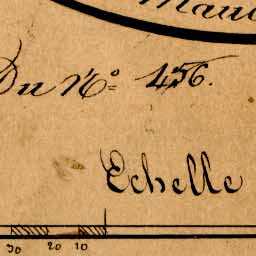 Du N.º 456.
Echelle
30 20 10